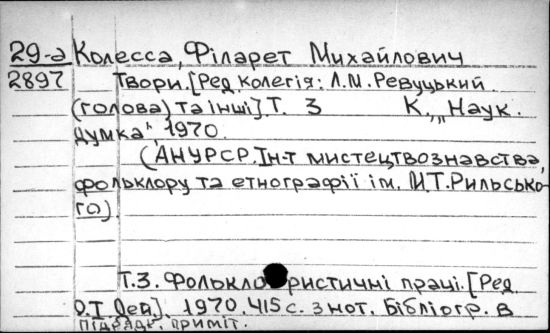 29-а Колесса, Філарет Михайлович
2897 Твори. [Ред. колегія: Л.М. Ревуцький
(голова) та інші]. Т. 3 К., „Наук.
думка“, 1970.
(АНУРСР. Ін-т мистецтвознавства,
фольклору та етнографії ім. М.Т. Рильсько-
го).
Т.3. Фольклористичні праці. [Ред.
О.І. Дей]. 1970. 415 с. з нот. Бібліогр. в
підрядк. приміт.